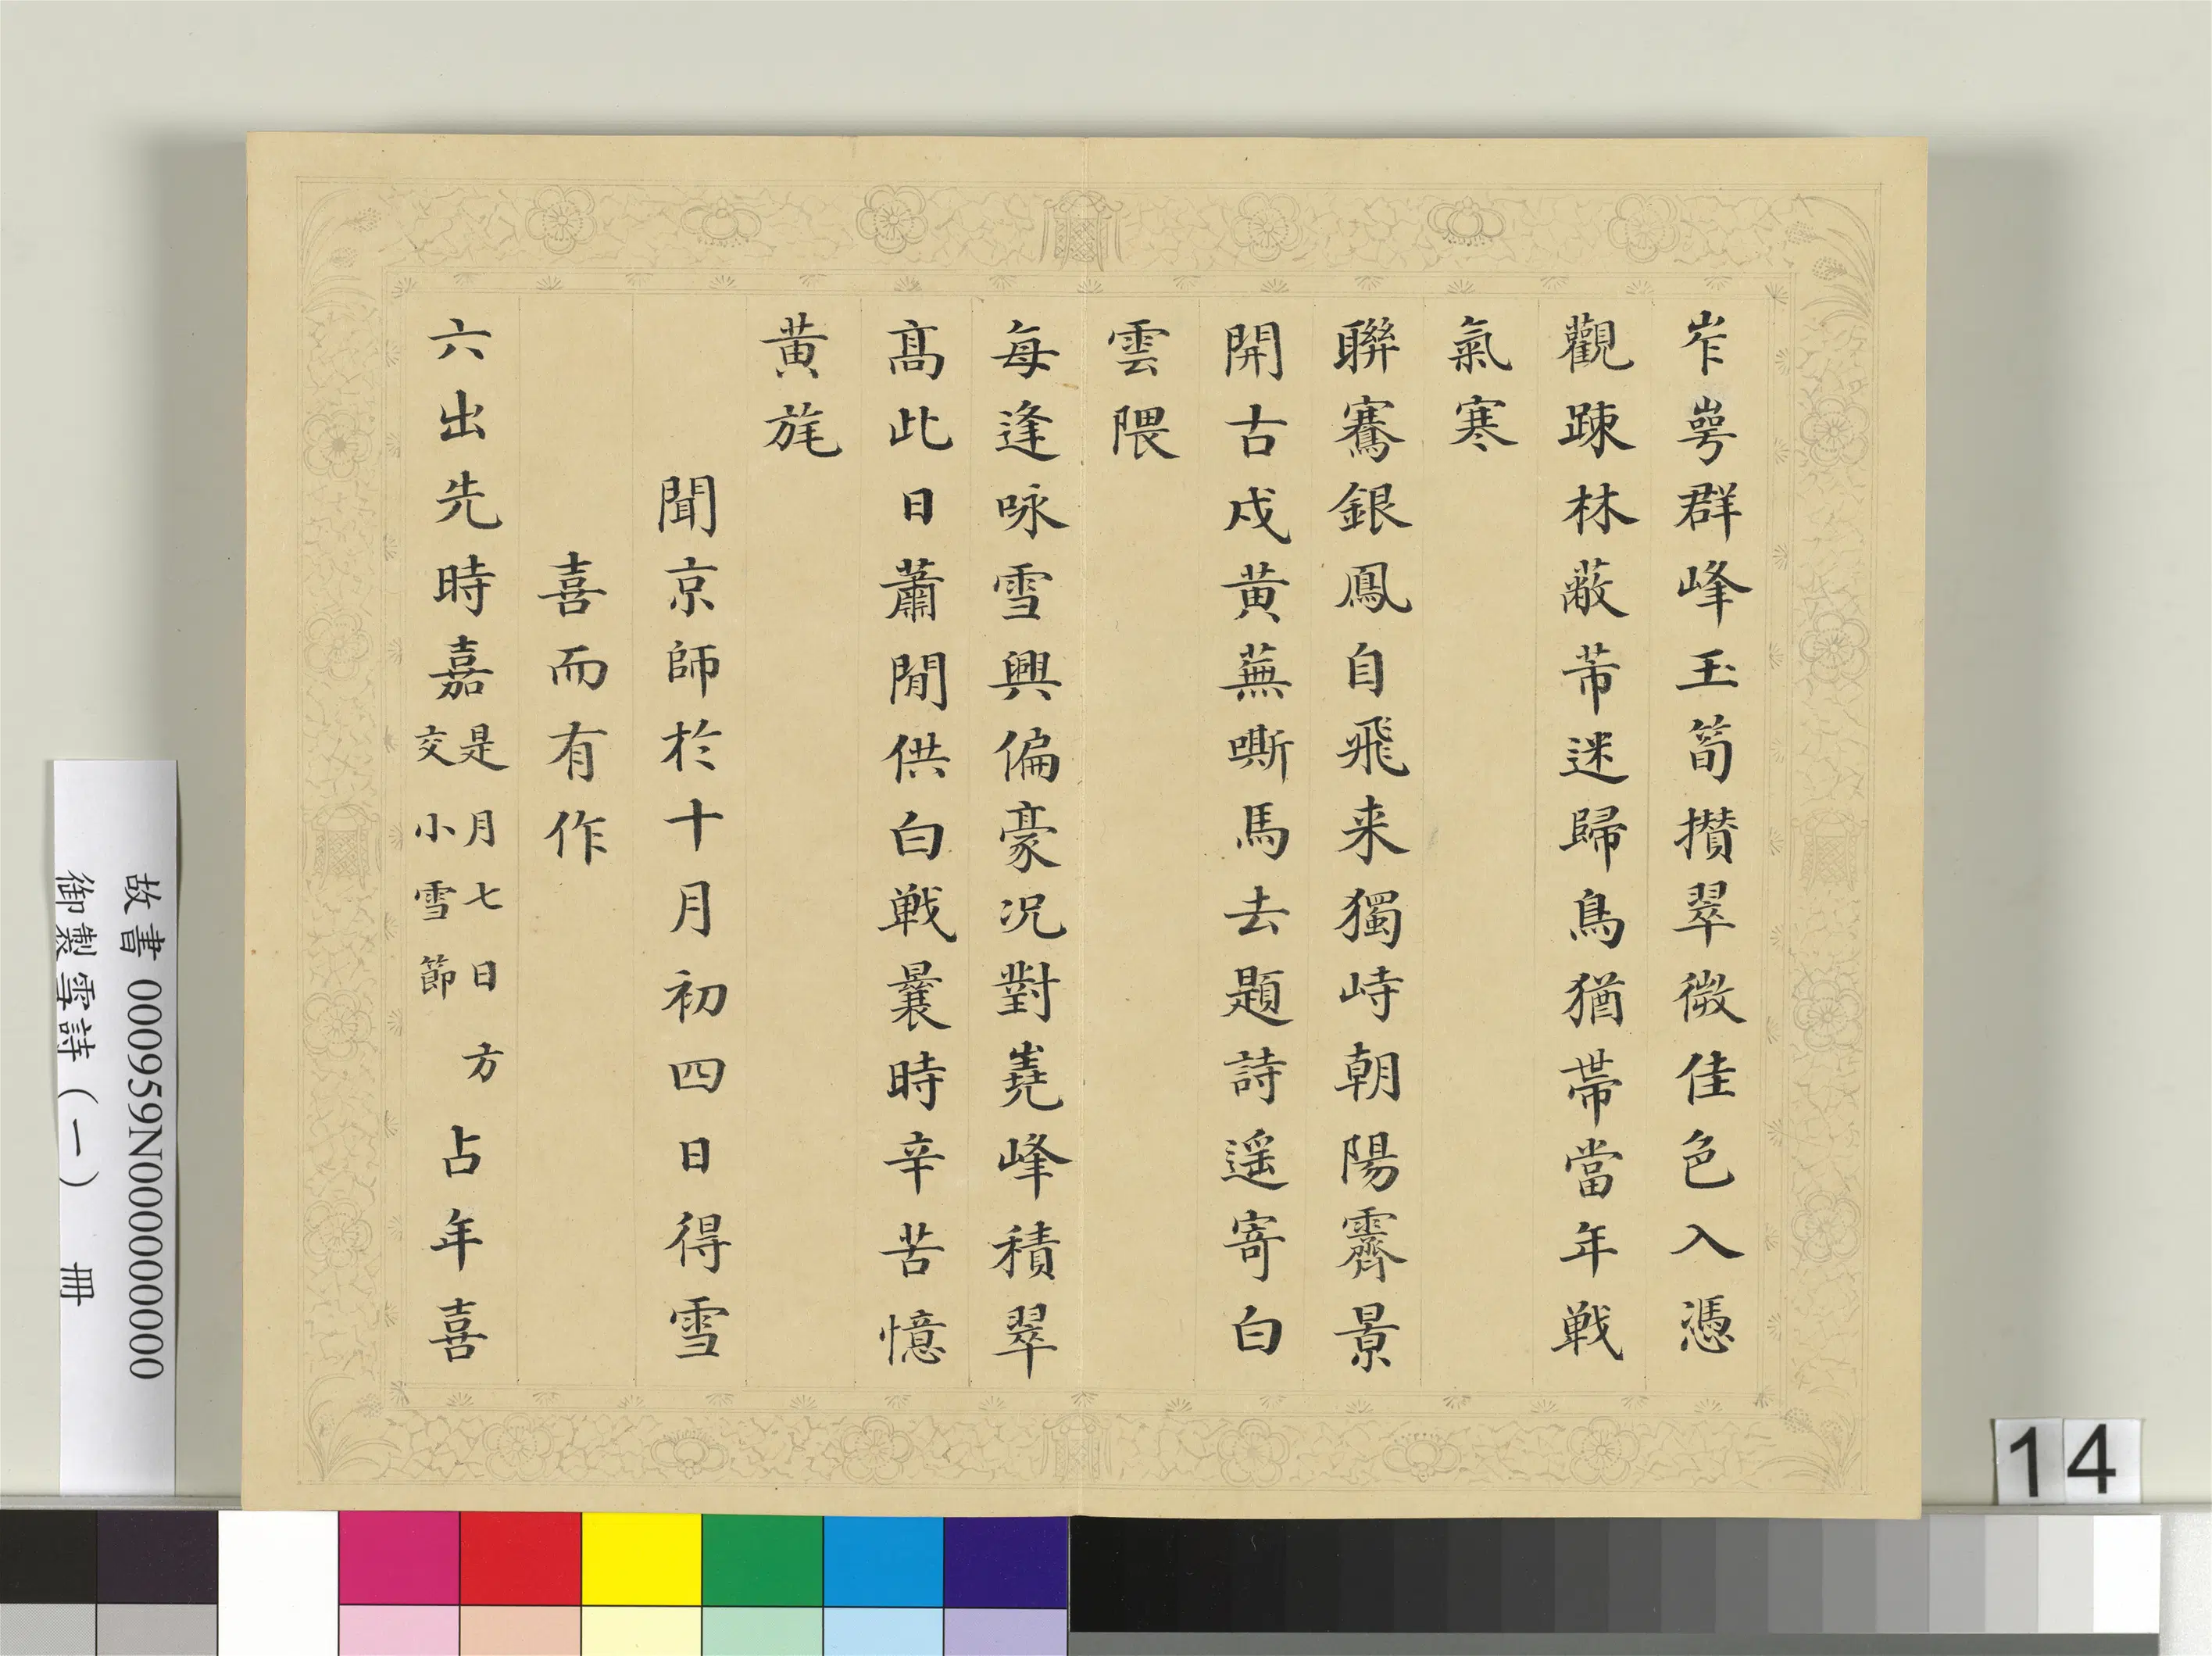 岝崿群峰玉筍攅翠微佳色入憑
觀踈林蔽芾迷歸鳥猶帶當年戰
氣寒
聯騫銀鳳自飛来獨峙朝陽霽景
開古戍黄蕪嘶馬去題詩遥寄白
雲隈
每逢咏雪興偏豪况對嶤峰積翠
髙此日蕭閒供白戰曩時辛苦憶
黄旄
聞京師於十月初四日得雪
喜而有作
六出先時嘉是月七日交小雪節方占年喜
故書 000959N000000000
御製雪詩（一） 冊
14